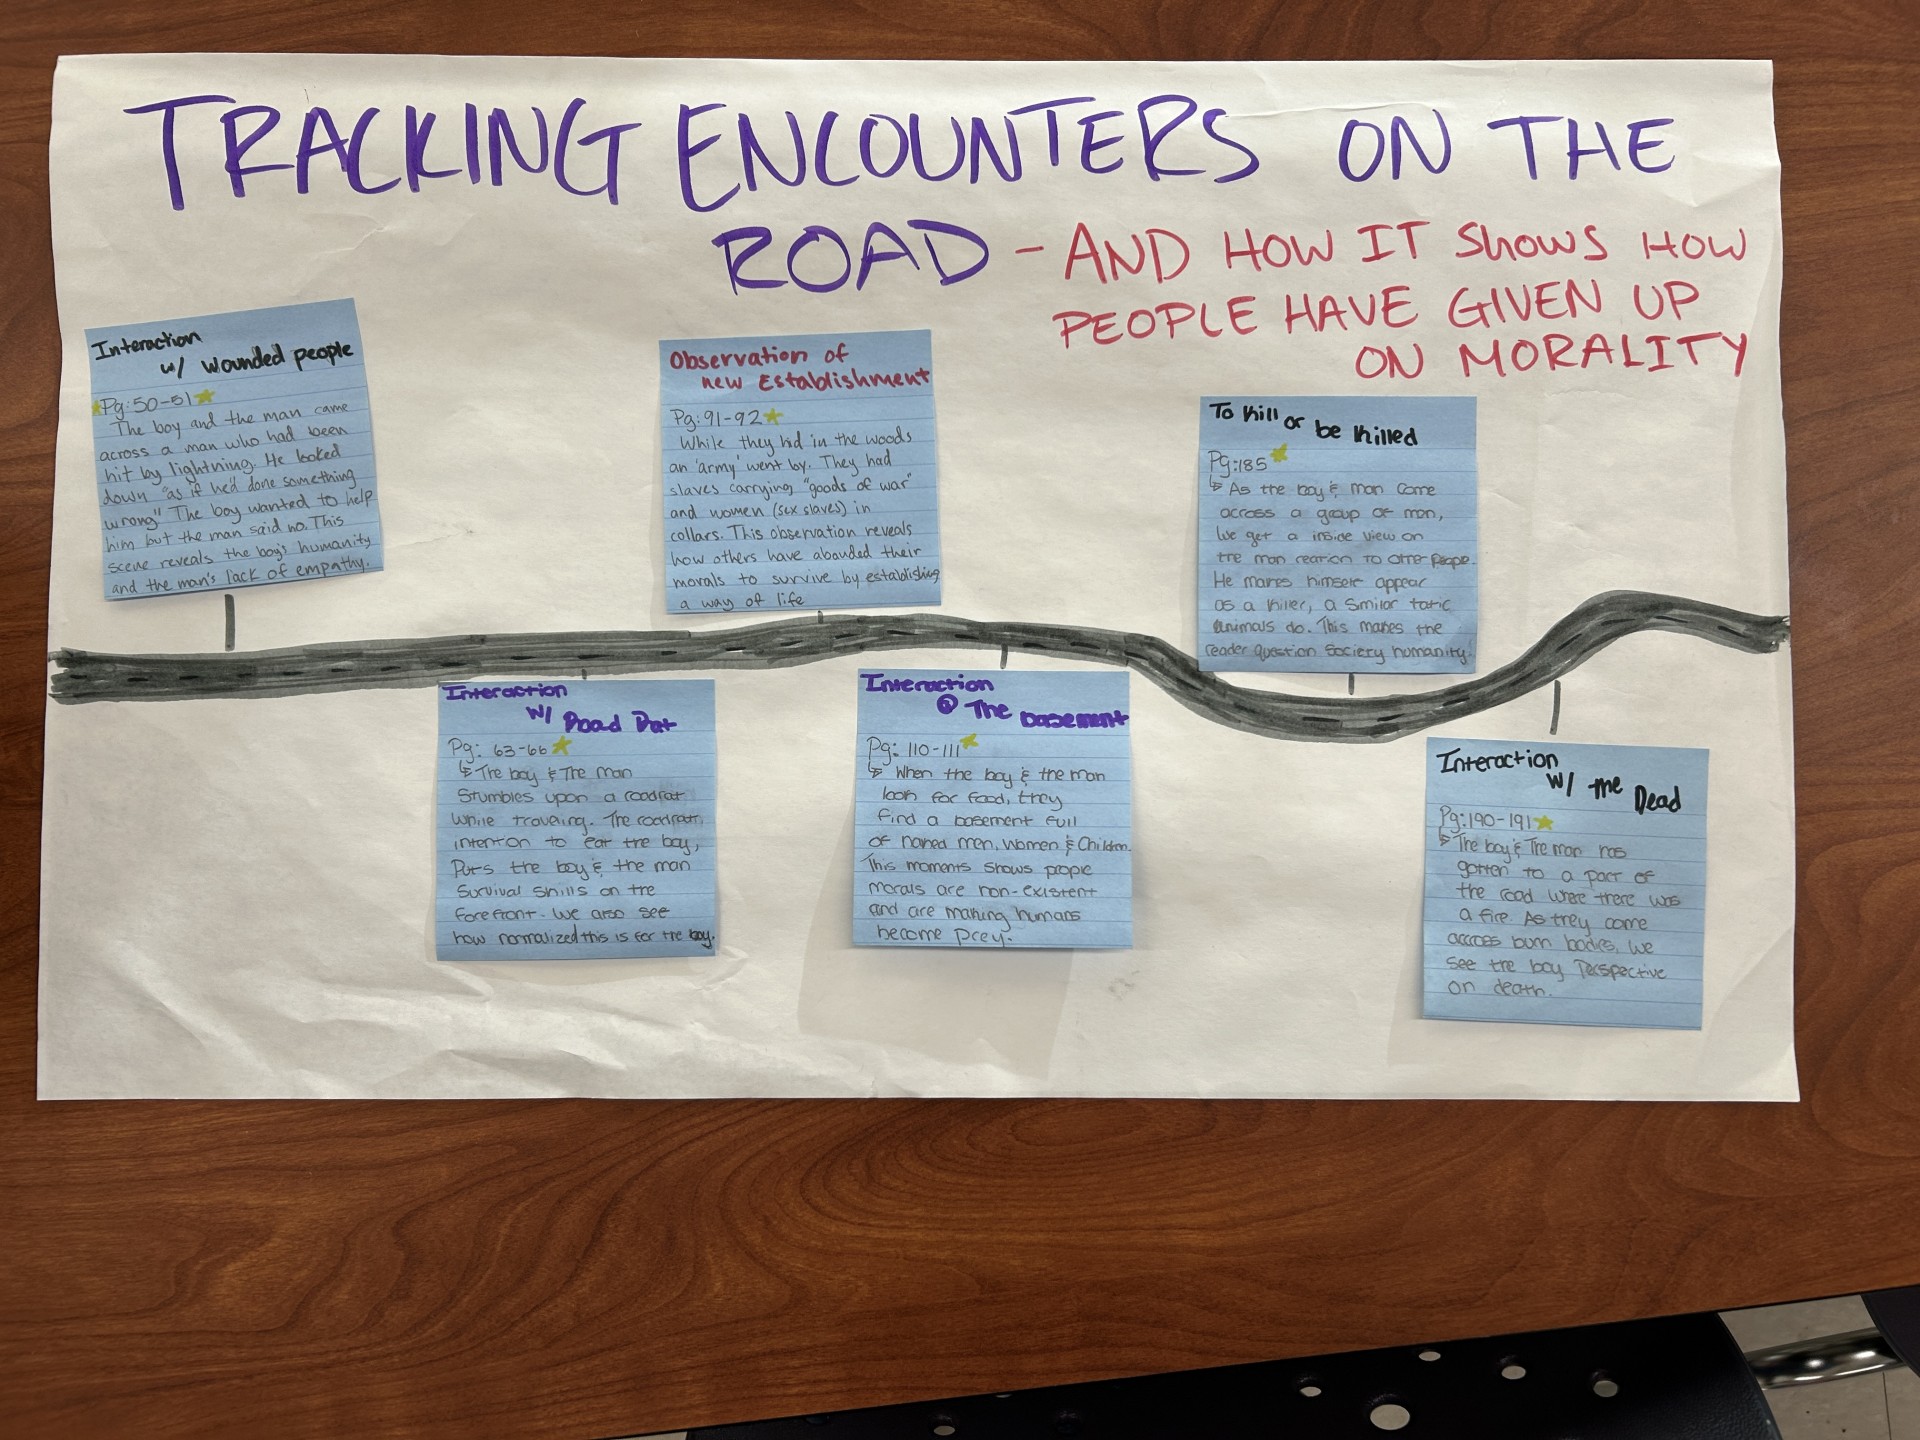 TRACKING ENCOUNTERS ON THE
ROAD - AND HOW IT SHOWS HOW
PEOPLE HAVE GIVEN UP
ON MORALITY
Interaction
w/ wounded people
Pg: 50-51
The boy and the man came
across a man who had been
hit by lightning. He looked
down "as if he'd done something
wrong" The boy wanted to help
him but the man said no. This
scene reveals the boy's humanity
and the man's lack of empathy.
Interaction
w/ Road Rat
Pg: 63-66
↳ The boy & The man
Stumbles upon a roadrat
while traveling. The roadrat
intention to eat the boy,
Puts the boy & the man
Survival skills on the
forefront. We also see
how normalized this is for the boy.
Observation of
new Establishment
Pg: 91-92
While they hid in the woods
an 'army' went by. They had
slaves carrying "goods of war"
and women (sex slaves) in
collars. This observation reveals
how others have abanded their
morals to survive by establishing
a way of life
Interaction
@ The basement
Pg: 110-111
↳ When the boy & the man
look for food, they
find a basement full
of naked men, women & Children.
This moments shows people
morals are non-existent
and are making humans
become prey.
To Kill or be Killed
Pg: 185
↳ As the boy & man come
across a group of men,
we get a inside view on
the man reation to other people.
He makes himself appear
as a killer, a similar tatic
animals do. This makes the
reader question Society humanity.
Interaction
w/ the Dead
Pg: 190-191
↳ The boy & The man has
gotten to a part of
the road were there was
a fire. As they come
accross burn bodies, we
see the boy Perspective
on death.